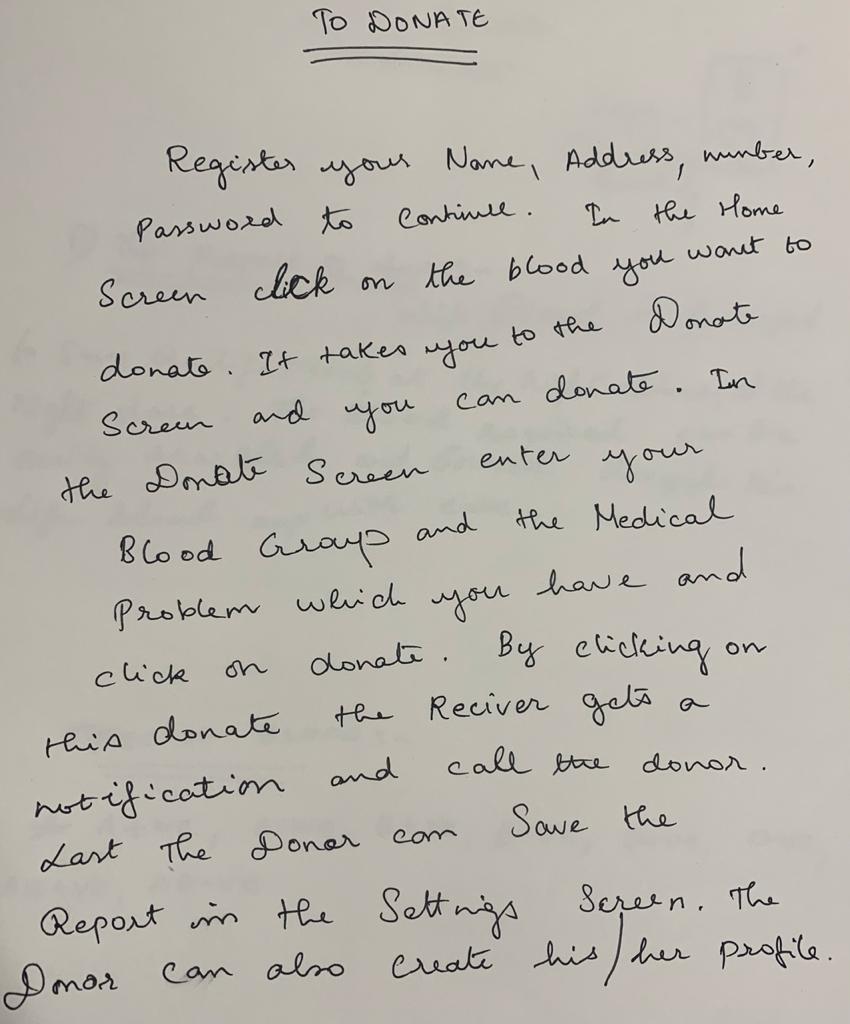 TO DONATE
Register your Name, Address, number,
Password to Continue. In the Home
Screen click on the blood you want to
donate. It takes you to the Donate
Screen and you can donate. In
the Donate Screen enter your
Blood Group and the Medical
Problem which you have and
click on donate. By clicking on
this donate the Reciver gets a
notification and call the donor.
Last The Donor can Save the
Report in the Settings Screen. The
Donor can also create his/her profile.